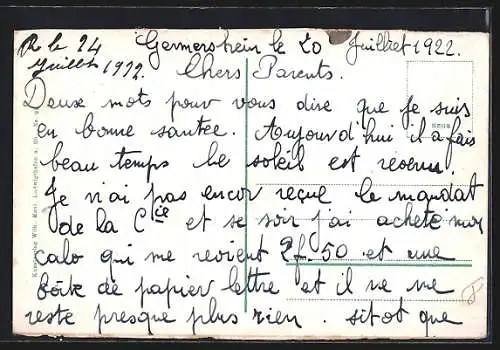 R le 24 Juillet 1922.
Germersheim le 20 Juillet 1922.
Chers Parents.
Deux mots pour vous dire que je suis
en bonne santee. Aujourd'hui il a fais
beau temps le soleil est revenu.
Je n'ai pas encor reçue le mandat
de la Cie et se soir j'ai acheté mon
calo qui me revient 2f.50 et une
boite de papier lettre et il ne me
reste presque plus rien. sitot que